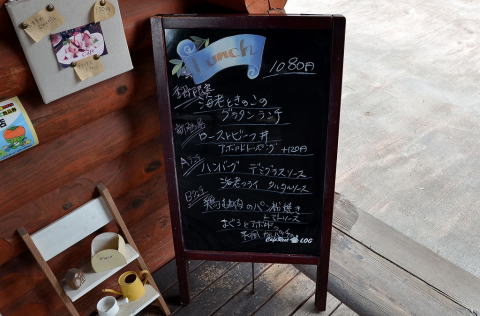 Lunch
1080円
季節限定
海老ときのこの
グラタンランチ
ローストビーフ丼
アボカドトッピング +120円
Aランチ
ハンバーグ デミグラスソース
海老フライ タルタルソース
Bランチ
鶏もも肉のパン粉焼き
トマトソース
まぐろとアボカドの
LOG